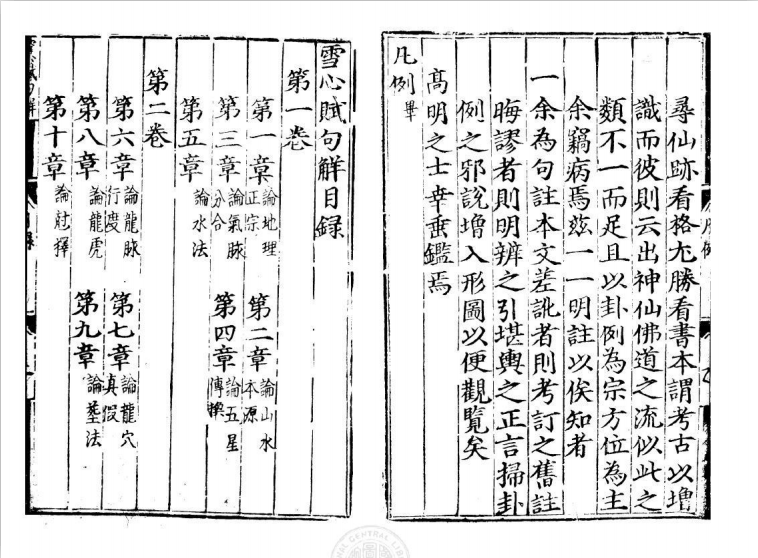 尋仙跡看格尤勝看書本謂考古以增
識而彼則云出神仙佛道之流似此之
類不一而足且以卦例為宗方位為主
余竊病焉茲一一明註以俟知者
一余為句註本文差訛者則考訂之舊註
晦謬者則明辨之引堪輿之正言掃卦
例之邪說增入形圖以便觀覽矣
高明之士幸垂鑑焉
凡例畢
凡例
雪心賦句解目錄
第一卷
第一章論地理正宗 第二章論山水本源
第三章論氣脉分合 第四章論五星傳變
第五章論水法
第二卷
第六章論龍脉行度 第七章論龍穴真假
第八章論龍虎 第九章論塟法
第十章論尅擇